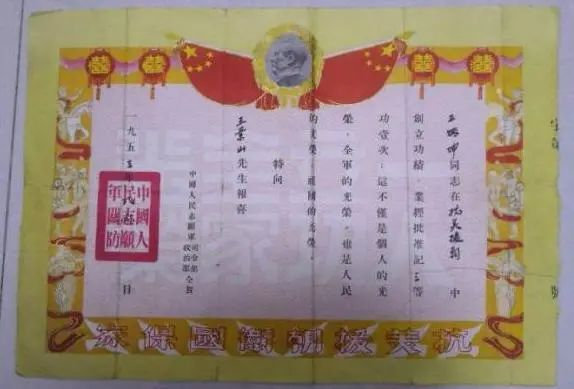 囍 囍 囍 囍
同志在抗美援朝中
創立功績，業經批准記三等
功壹次；這不僅是個人的光
榮，全軍的光榮，也是人民
的光榮，祖國的光榮。
特向
王業山先生報喜
中國人民志願軍司令部
全賀
一九五三年 月 日
中國人
民志願
軍國防
抗美援朝衛國保家